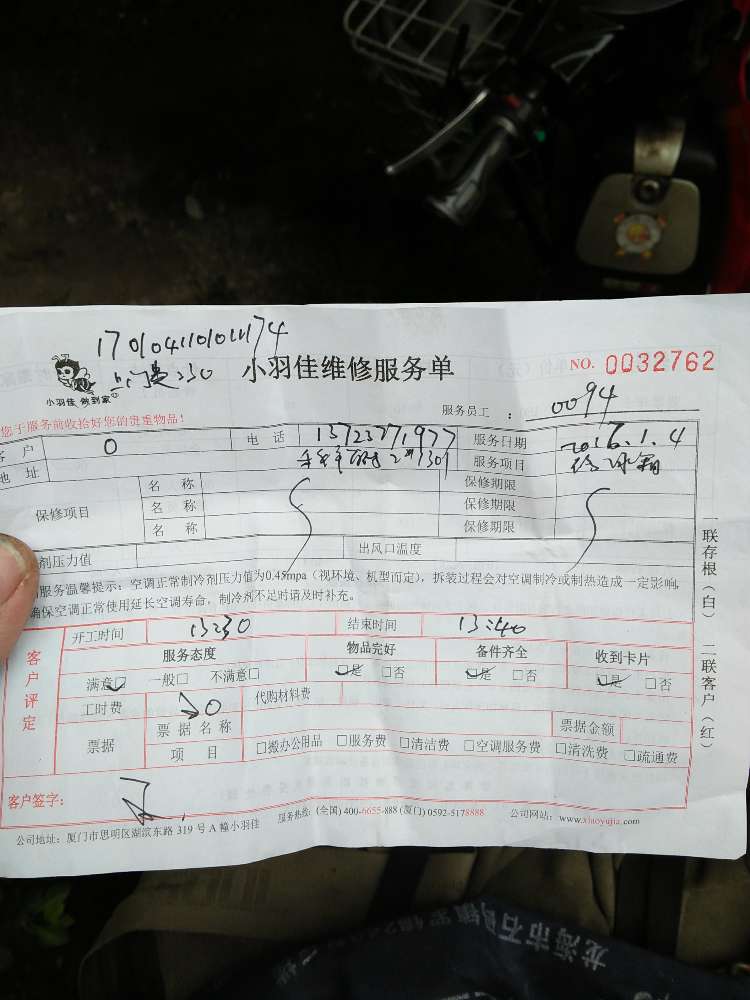 上门费:30
小羽佳维修服务单
NO. 0032762
小羽佳 做到家
服务员工 : 0094
您于服务前收拾好您的贵重物品!
客 户
电 话 13723771977
服务日期 2016.1.4
地 址
服务项目 修冰箱
保修项目
名 称
保修期限
名 称
保修期限
名 称
保修期限
剂压力值
出风口温度
服务温馨提示:空调正常制冷剂压力值为0.45mpa(视环境、机型而定),拆装过程会对空调制冷或制热造成一定影响,
确保空调正常使用延长空调寿命,制冷剂不足时请及时补充。
客户评定
开工时间 13:30
结束时间 13:40
服务态度
物品完好
备件齐全
收到卡片
满意□ 一般□ 不满意□
□是 □否
□是 □否
□是 □否
工时费 30
代购材料费
票据
票据名称
票据金额
项 目
□搬办公用品 □服务费 □清洁费 □空调服务费 □清洗费 □疏通费
客户签字:
公司地址:厦门市思明区湖滨东路 319 号 A 幢小羽佳
服务热线:(全国) 400-6655-888 (厦门) 0592-5178888
公司网站:www.xiaoyujia.com
一联存根(白) 二联客户(红)
龙海市石码镇